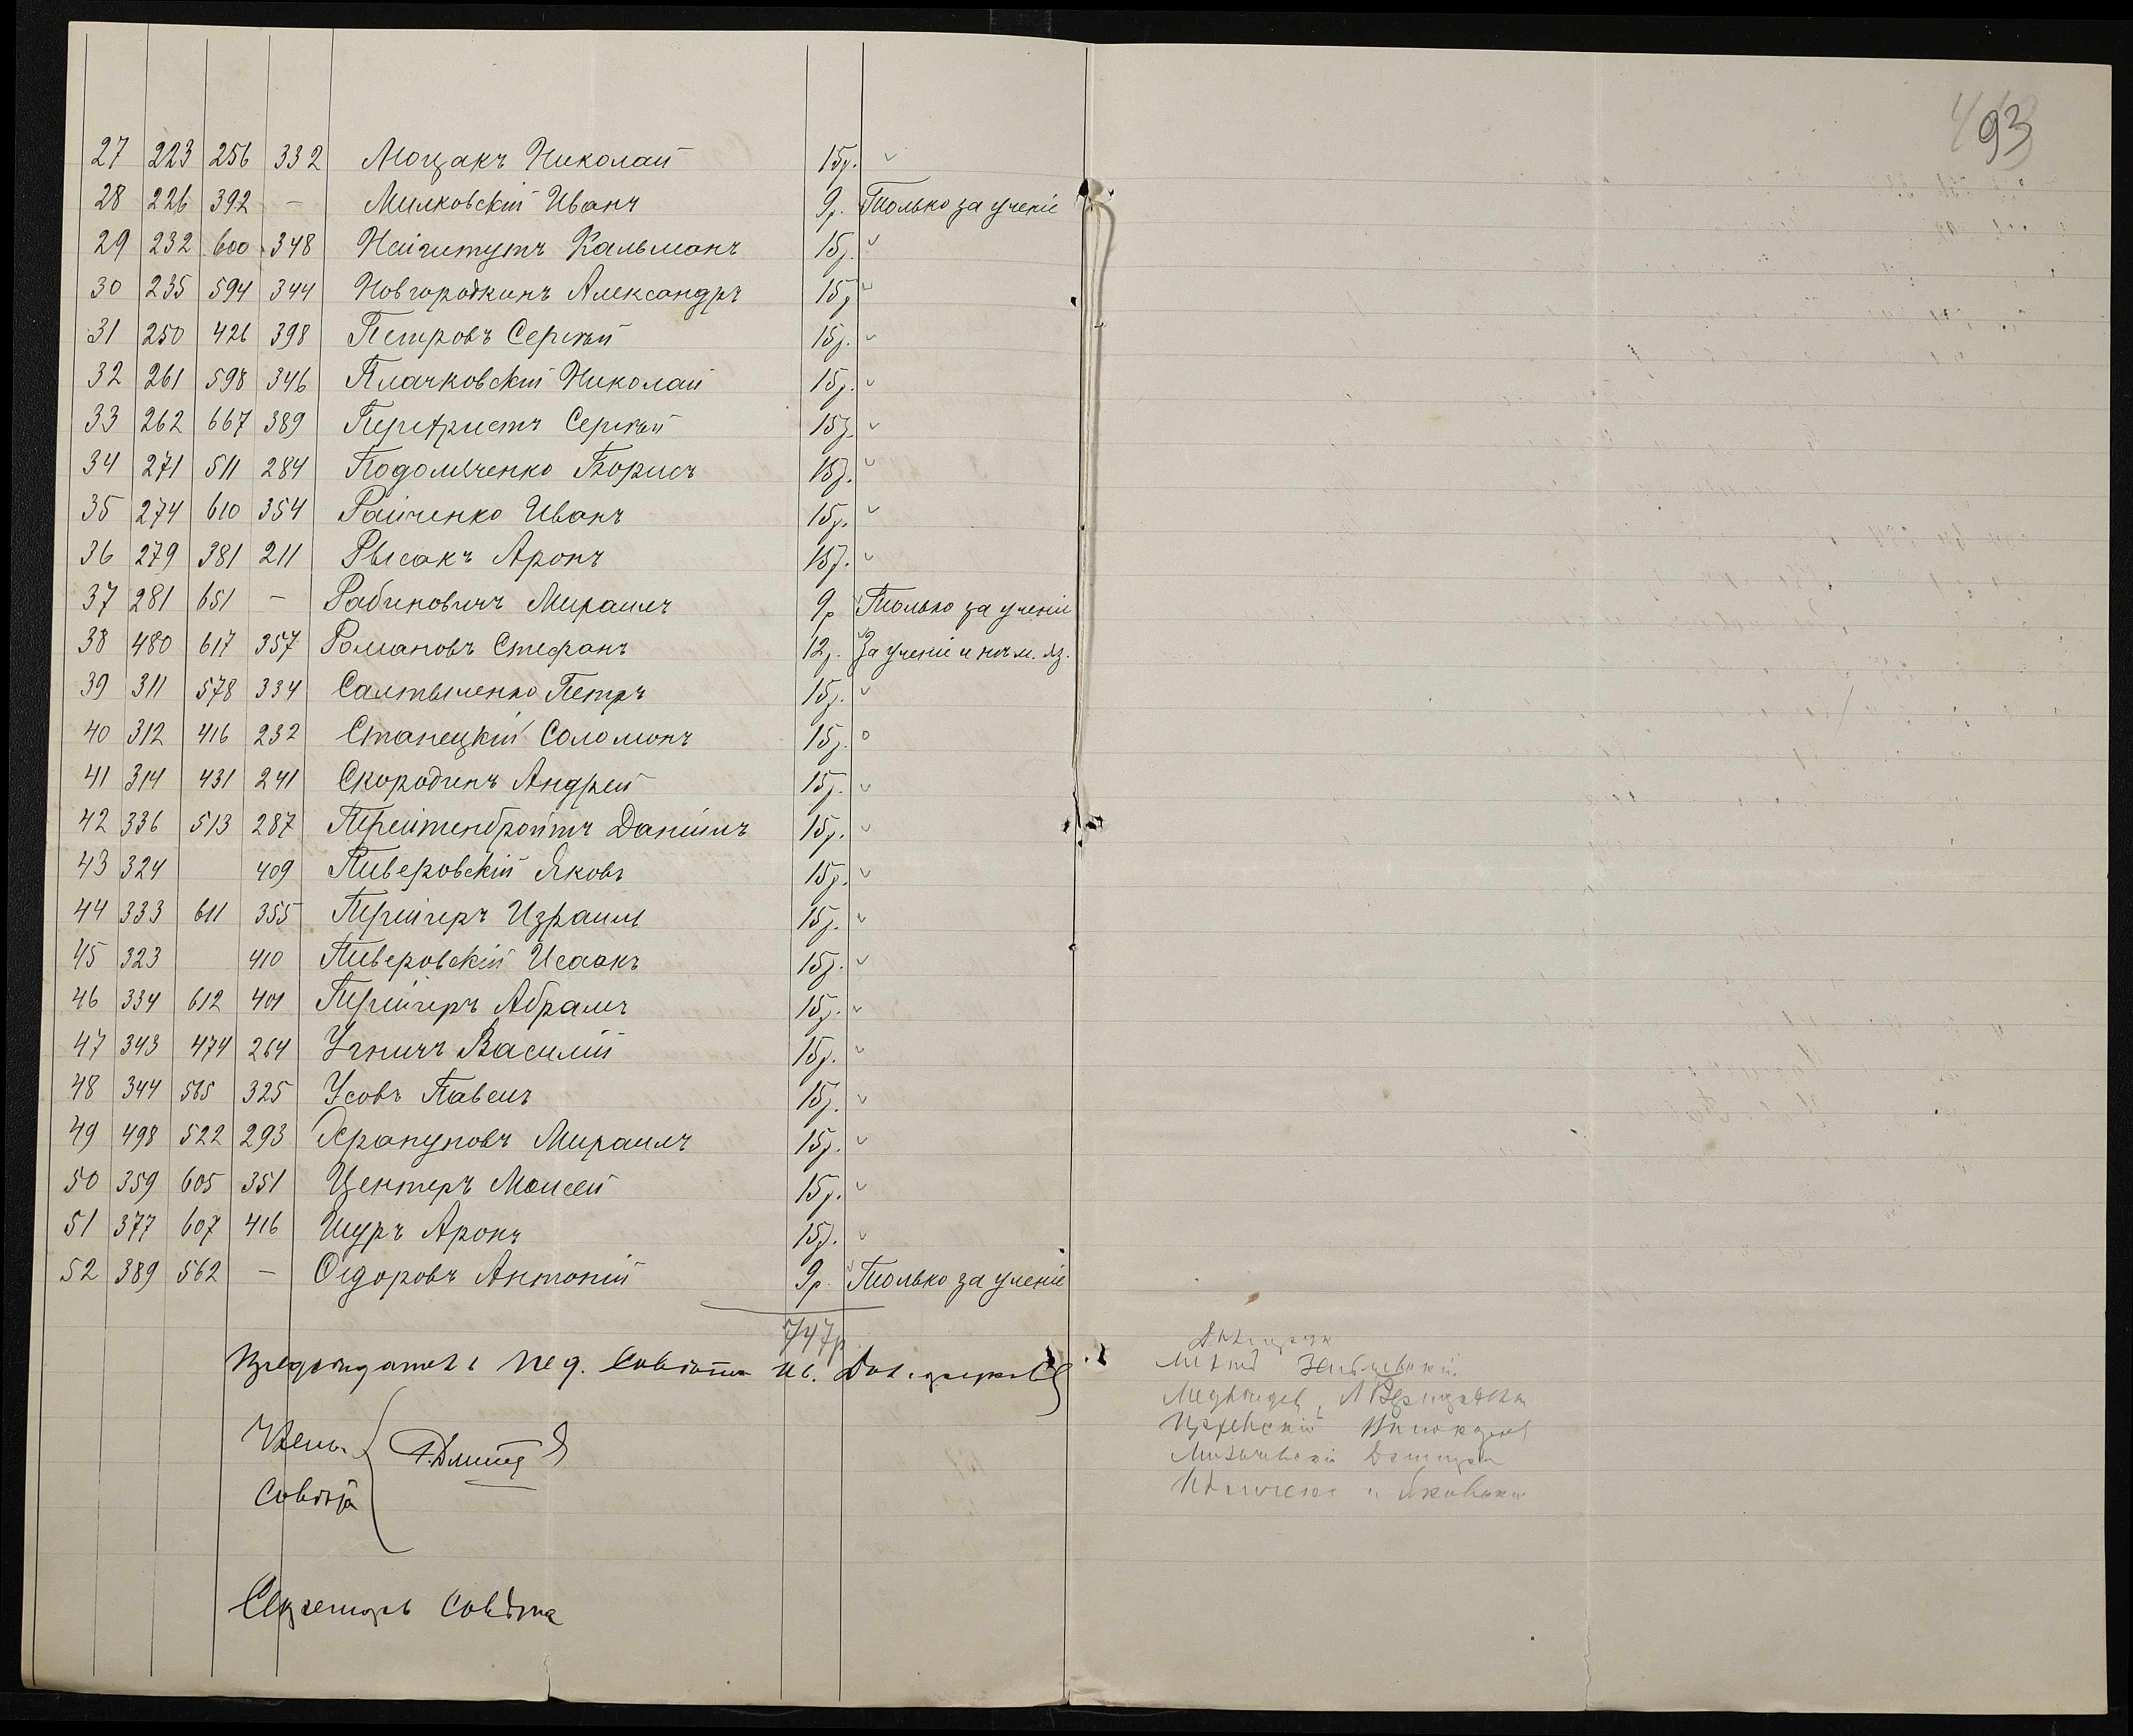 27 223 256 332 Мощакъ Николай 15р. "
28 226 392 — Милковскій Иванъ 9р. Только за ученіе
29 232 600 348 Нейгитутъ Кальманъ 15р. "
30 235 594 344 Новгородкинъ Александръ 15р "
31 250 426 398 Петровъ Сергѣй 15р. "
32 261 598 346 Плачковскій Николай 15р. "
33 262 667 389 Перефристъ Сергѣй 15р. "
34 271 511 284 Подомяченко Борисъ 15р. "
35 274 610 354 Райченко Иванъ 15р. "
36 279 381 211 Рысакъ Аронъ 15р. "
37 281 651 — Рабиновичъ Михаилъ 9р Только за ученіе
38 480 617 357 Романовъ Стефанъ 12р. За ученіе и нѣм. яз.
39 311 578 334 Салтыленко Петръ 15р. "
40 312 416 232 Станецкій Соломонъ 15р. "
41 314 431 241 Скородинъ Андрей 15р. "
42 336 513 287 Трейтенбройтъ Даніилъ 15р. "
43 324 409 Тиверовскій Яковъ 15р. "
44 333 611 355 Трейгеръ Израиль 15р. "
45 323 410 Тиверовскій Исаакъ 15р. "
46 334 612 401 Трейгеръ Абрамъ 15р. "
47 343 474 264 Угничъ Василій 15р. "
48 344 565 325 Усовъ Павелъ 15р. "
49 498 522 293 Храпуновъ Михаилъ 15р. "
50 359 605 351 Центеръ Моисей 15р. "
51 377 607 416 Шуръ Аронъ 15р. "
52 389 562 — Ѳедоровъ Антоній 9р. Только за ученіе
747р
Предсѣдатель Пед. Совѣта
Члены
Совѣта
Секретарь Совѣта
93